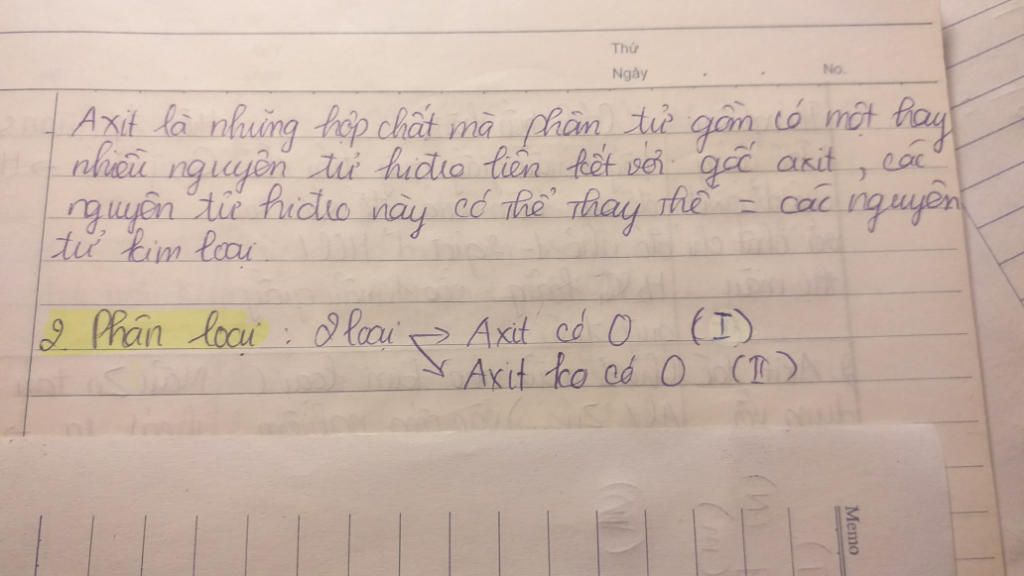 Thứ
Ngày . . No.
Axit là những hợp chất mà phân tử gồm có một hay
nhiều nguyên tử hiđro liên kết với gốc axit, các
nguyên tử hiđro này có thể thay thế = các nguyên
tử kim loại.
2. Phân loại : 2 loại → Axit có O (I)
→ Axit ko có O (II)
Memo